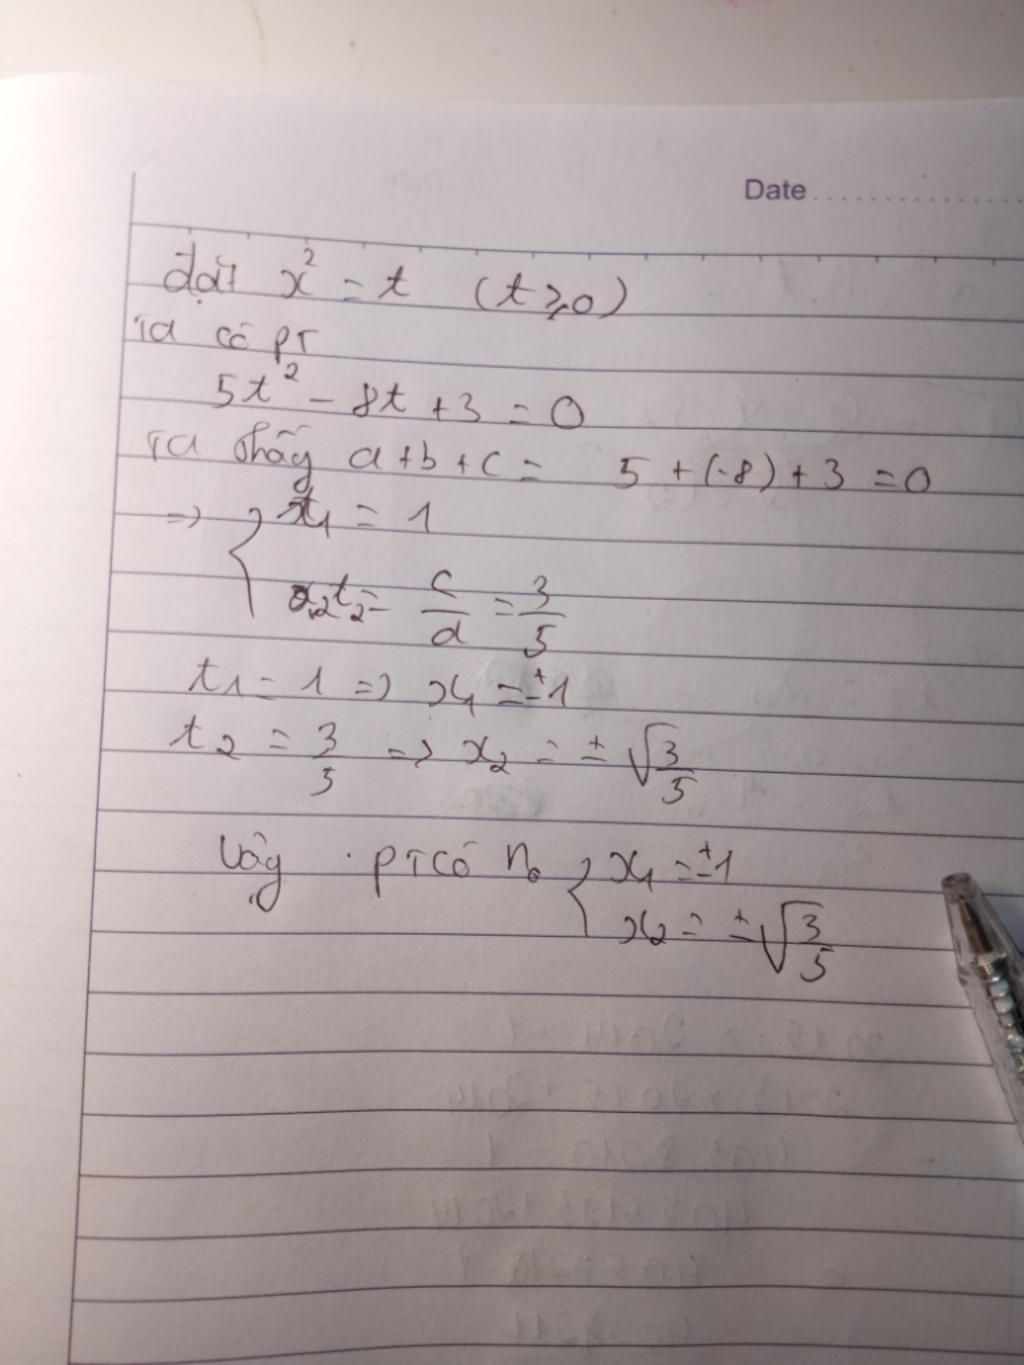 Date
đặt x² = t (t ≥ 0)
Ta có PT
5t² - 8t + 3 = 0
Ta thấy a + b + c = 5 + (-8) + 3 = 0
=> { t₁ = 1
t₂ = c/a = 3/5
t₁ = 1 => x₁ = ±1
t₂ = 3/5 => x₂ = ± √3/5
Vậy PT có n₀ { x₁ = ±1
x₂ = ± √3/5